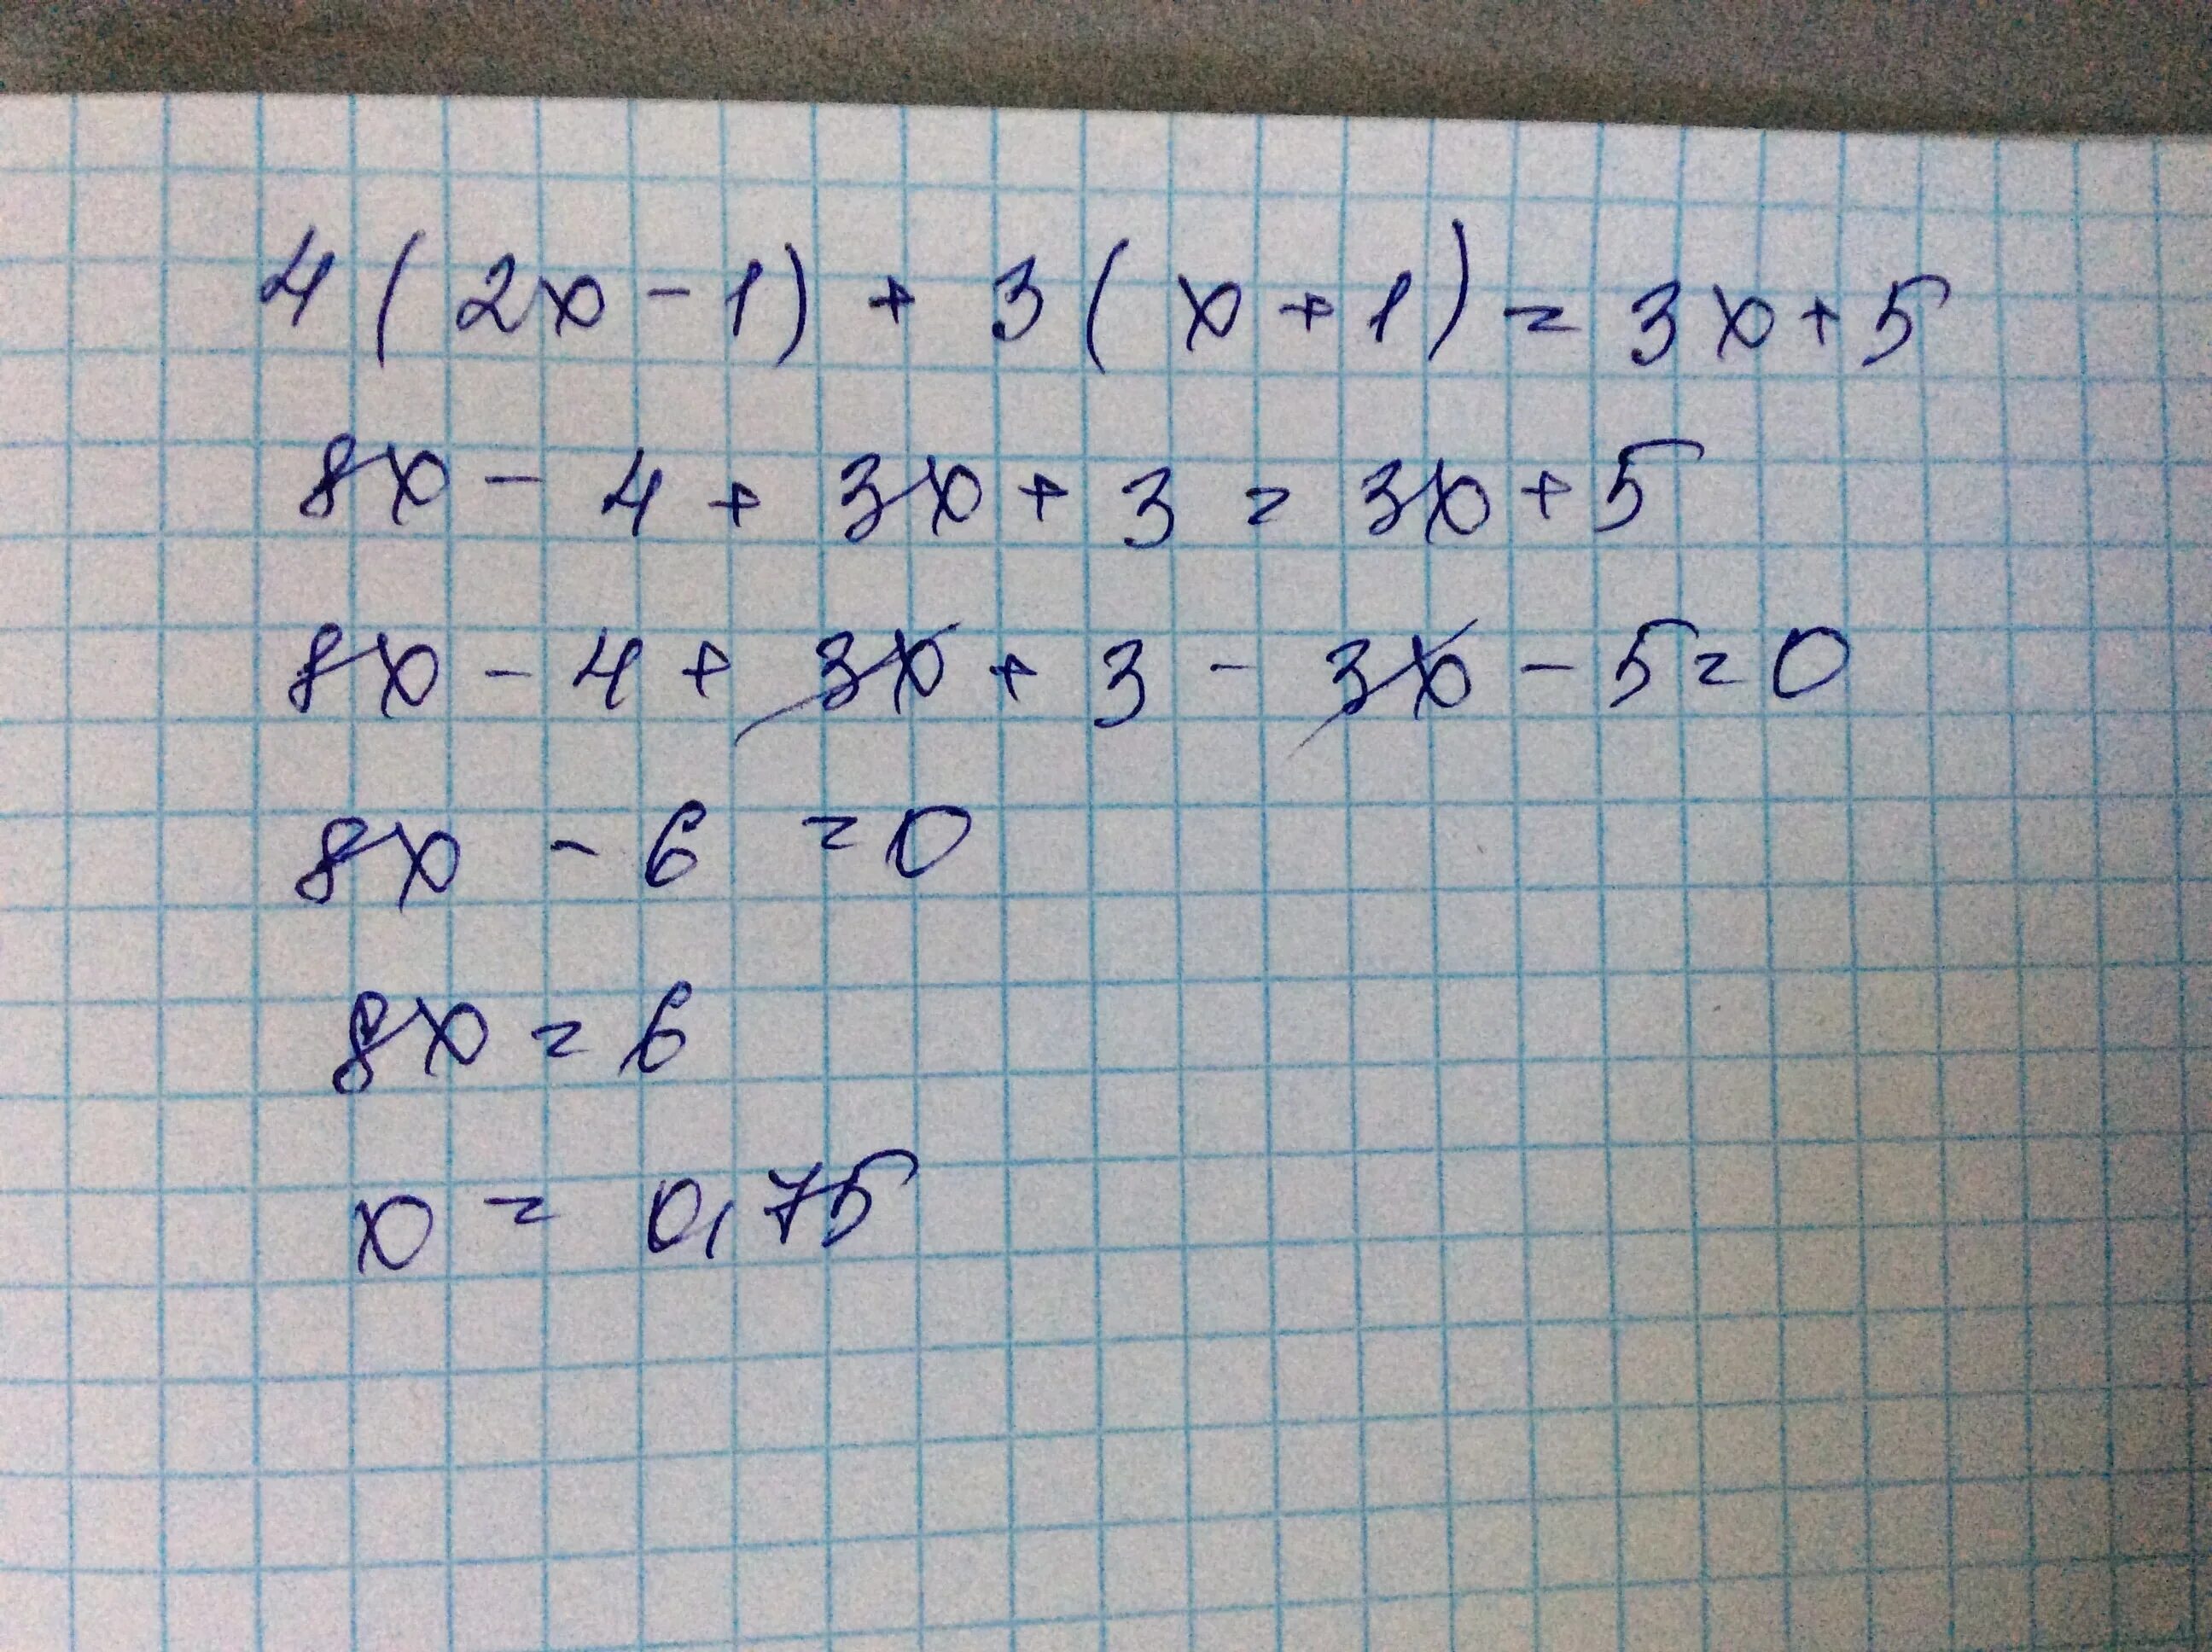 4(2x-1)+3(x+1)=3x+5
8x-4+3x+3=3x+5
8x-4+3x+3-3x-5=0
8x-6=0
8x=6
x=0,75